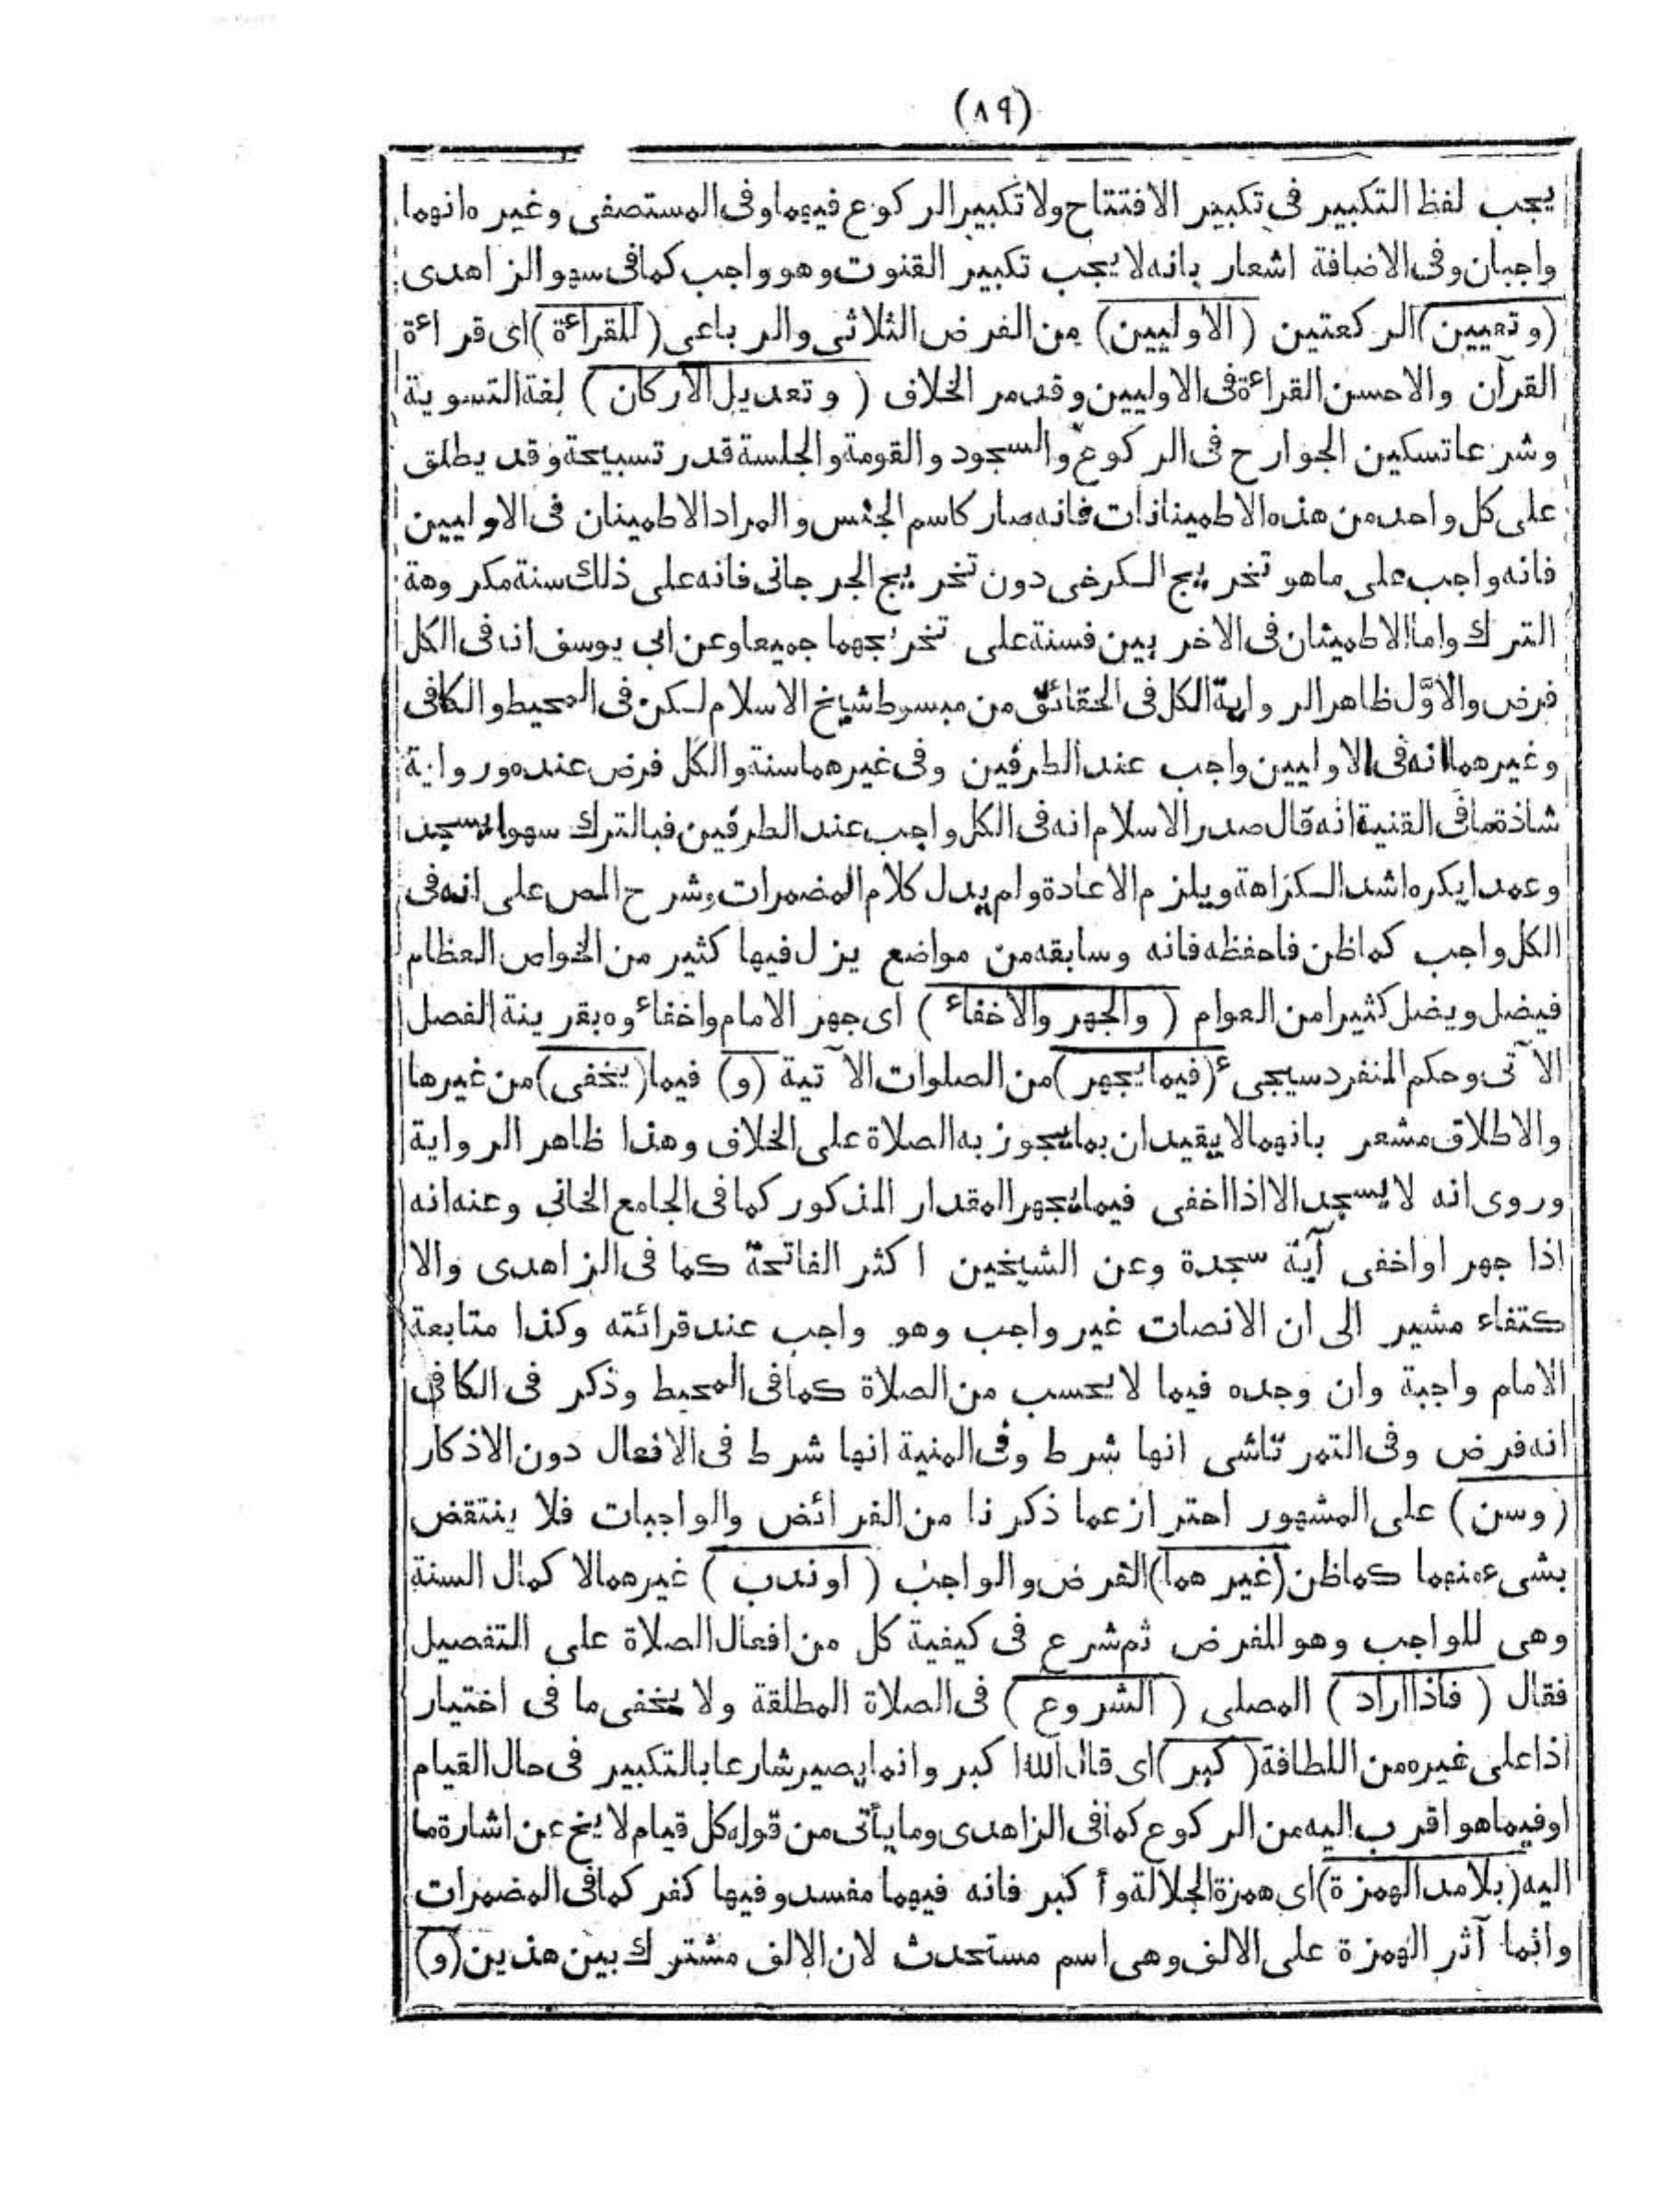 (٨٩)
يجب لفظ التكبير في تكبير الافتتاح ولا تكبير الركوع فيهما وفى المستصفى وغيره انهما
واجبان وفى الاضافة اشعار بانه لا يجب تكبير القنوت وهو واجب كما فى سهو الزاهدى
(وتعيين) الركعتين (الاوليين) من الفرض الثلاثى والرباعى (للقراءة) اى قراءة
القرآن والاحسن القراءة فى الاوليين وقد مر الخلاف (وتعديل الاركان) لغة التسوية
وشرعا تسكين الجوارح فى الركوع والسجود والقومة والجلسة قدر تسبيحة وقد يطلق
على كل واحد من هذه الاطمينانات فانه صار كاسم الجنس والمراد الاطمينان فى الاوليين
فانه واجب على ما هو تخريج الكرخى دون تخريج الجرجانى فانه على ذلك سنة مكروهة
الترك واما الاطمينان فى الاخريين فسنة على تخريجهما جميعا وعن ابى يوسف انه فى الكل
فرض والاوّل ظاهر الرواية الكل فى الحقائق من مبسوط شيخ الاسلام لكن فى المحيط والكافى
وغيرهما انه فى الاوليين واجب عند الطرفين وفى غيرهما سنة والكل فرض عنده ورواية
شاذة ما فى القنية انه قال صدر الاسلام انه فى الكل واجب عند الطرفين فبالترك سهوا يسجد
وعمدا يكره اشد الكراهة ويلزم الاعادة ولم يدل كلام المضمرات وشرح المص على انه فى
الكل واجب كما ظن فاحفظه فانه وسابقه من مواضع يزل فيها كثير من الخواص العظام
فيضل ويضل كثيرا من العوام (والجهر والاخفاء) اى جهر الامام واخفاءه بقرينة الفصل
الآتى وحكم المنفرد سيجىء (فيما يجهر) من الصلوات الآتية (و) فيما (يخفى) من غيرها
والاطلاق مشعر بانهما لا يقيدان بما تجوز به الصلاة على الخلاف وهذا ظاهر الرواية
وروى انه لا يسجد الا اذا اخفى فيما يجهر المقدار المذكور كما فى الجامع الخانى وعنه انه
اذا جهر او اخفى آية سجدة وعن الشيخين اكثر الفاتحة كما فى الزاهدى والا
كتفاء مشير الى ان الانصات غير واجب وهو واجب عند قرائته وكذا متابعة
الامام واجبة وان وجده فيما لا يحسب من الصلاة كما فى المحيط وذكر فى الكافى
انه فرض وفى التمرتاشى انها شرط وفى المنية انها شرط فى الافعال دون الاذكار
(وسن) على المشهور احتراز عما ذكرنا من الفرائض والواجبات فلا ينتقض
بشىء منهما كما ظن (غيرهما) الفرض والواجب (او ندب) غيرهما لاكمال السنة
وهى للواجب وهو للفرض ثم شرع فى كيفية كل من افعال الصلاة على التفصيل
فقال (فاذا اراد) المصلى (الشروع) فى الصلاة المطلقة ولا يخفى ما فى اختيار
اذا على غيره من اللطافة (كبر) اى قال الله اكبر وانما يصير شارعا بالتكبير فى حال القيام
او فيما هو اقرب اليه من الركوع كما فى الزاهدى وما يأتى من قوله كل قيام لا يخ عن اشارة ما
اليه (بلا مد الهمزة) اى همزة الجلالة وأكبر فانه فيهما مفسد وفيها كفر كما فى المضمرات
وانما آثر الهمزة على الالف وهى اسم مستحدث لان الالف مشترك بين هذين (و)